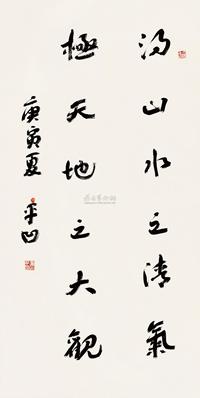 得山水之清氣
極天地之大觀
庚寅夏 平凹